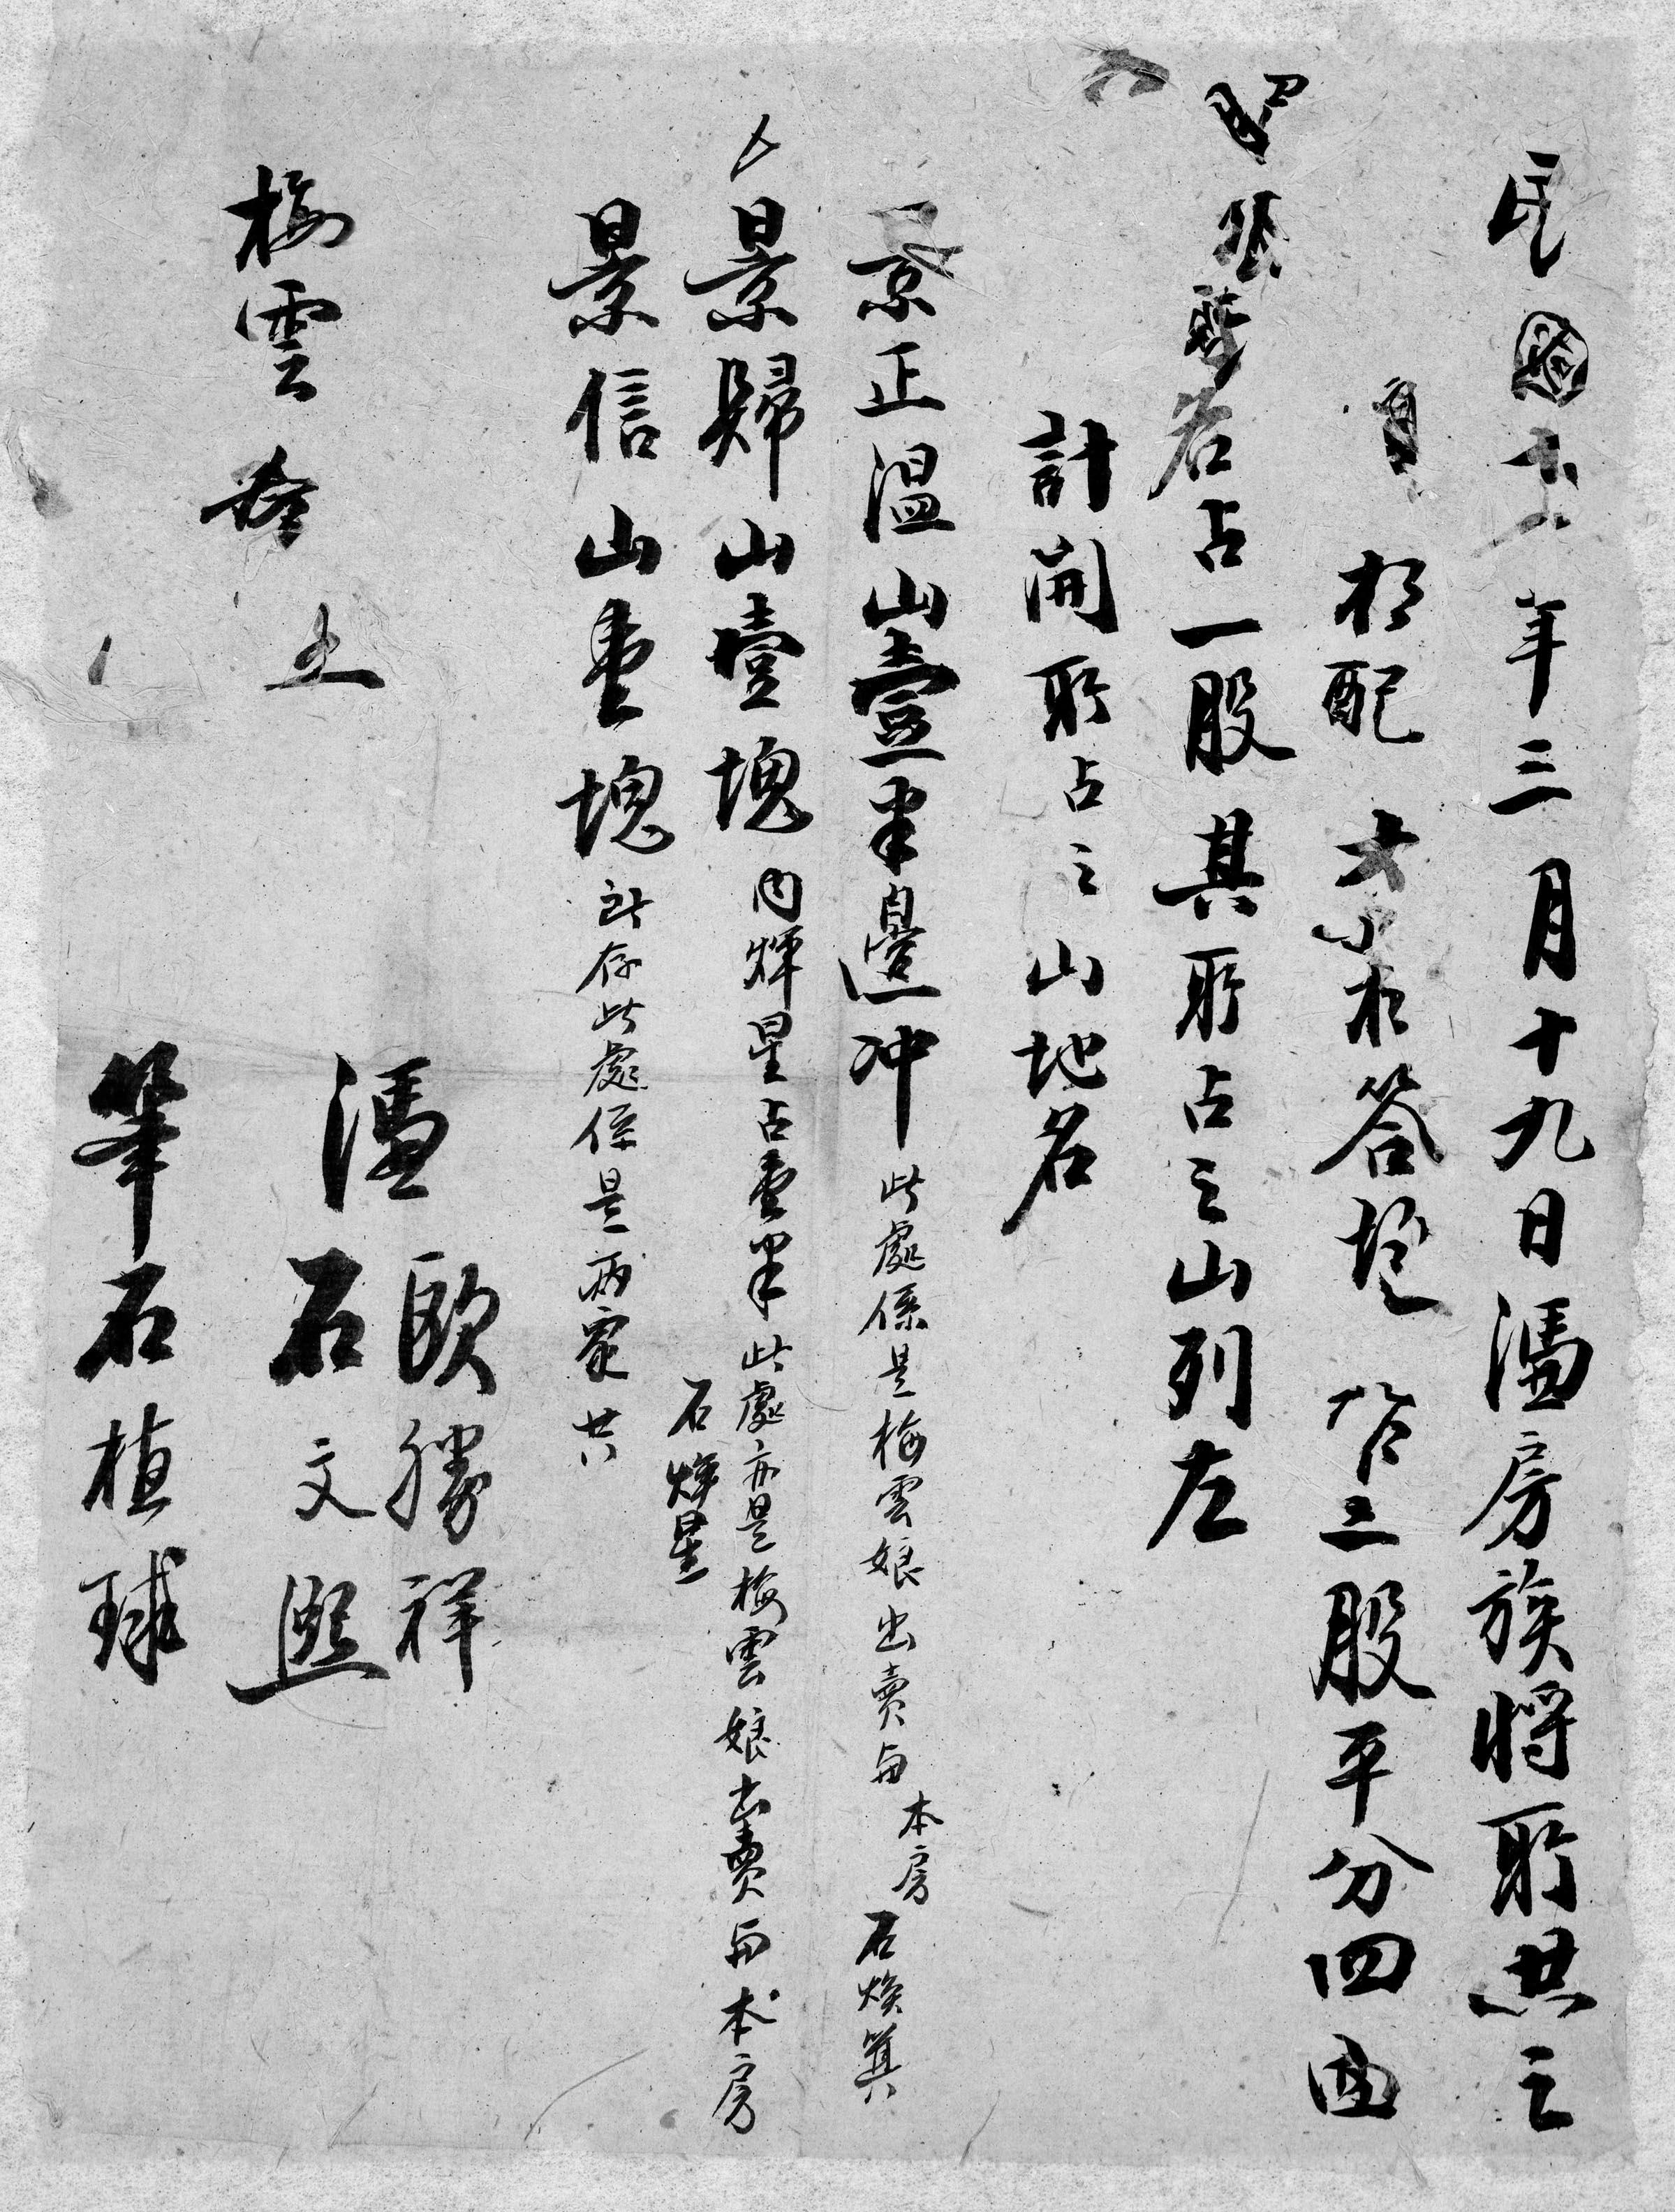 民國年三月十九日憑房族將所共之
相配大小相答墾作三股平分四田
名占一股其所占之山列左
計開所占之山地名
景正溫山壹半邊冲此處係是梅雲娘出賣與本房石煥箕
景歸山壹塊內輝星占壹半此處亦是梅雲娘出賣與本房
石輝星
景信山壹塊所存此處係是兩家共
憑歐勝祥
石文熙
梅雲
筆石植球